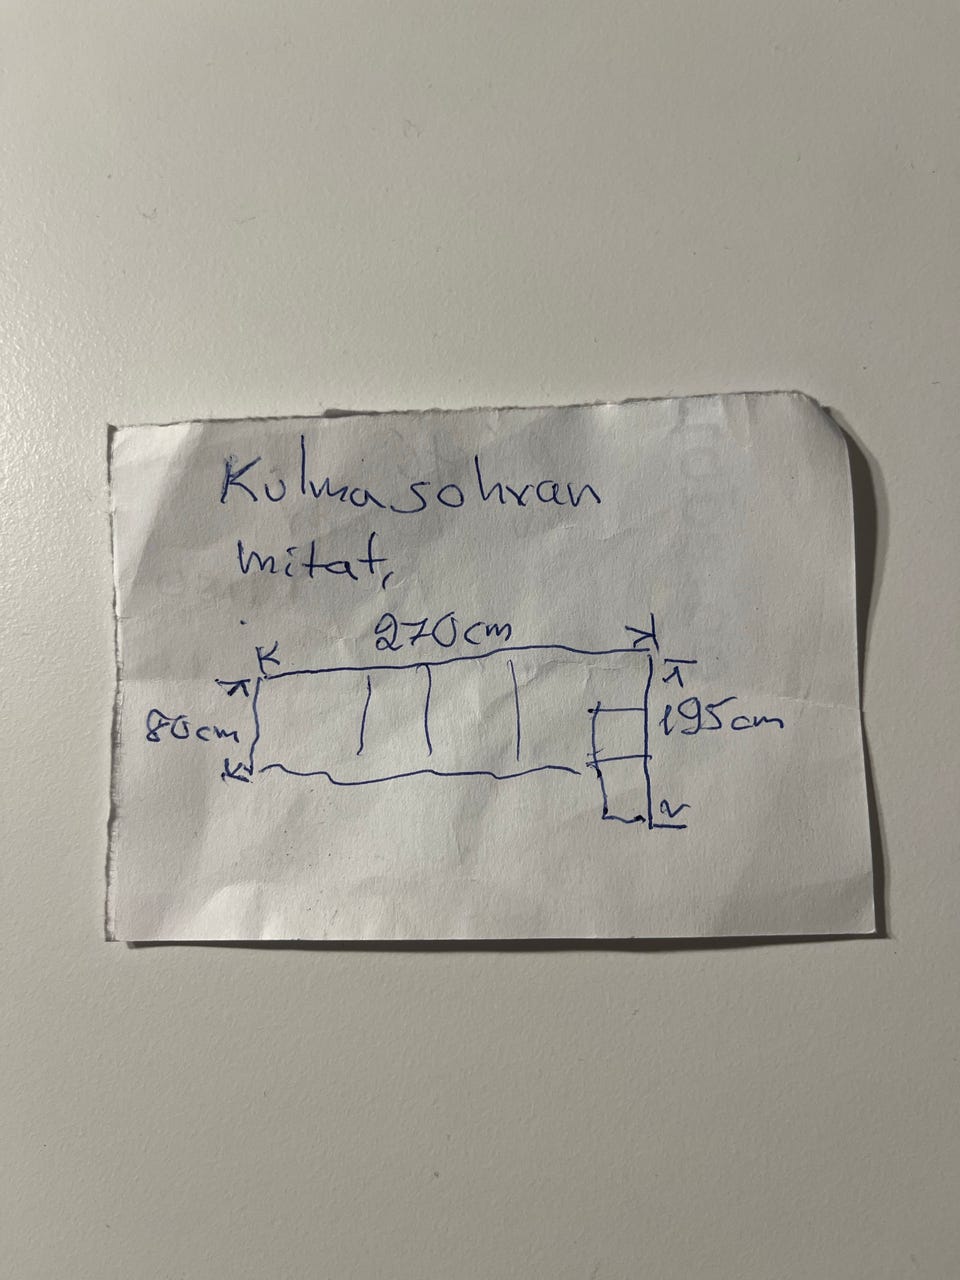 Kulmasohvan
mitat,
270cm
80cm
195cm